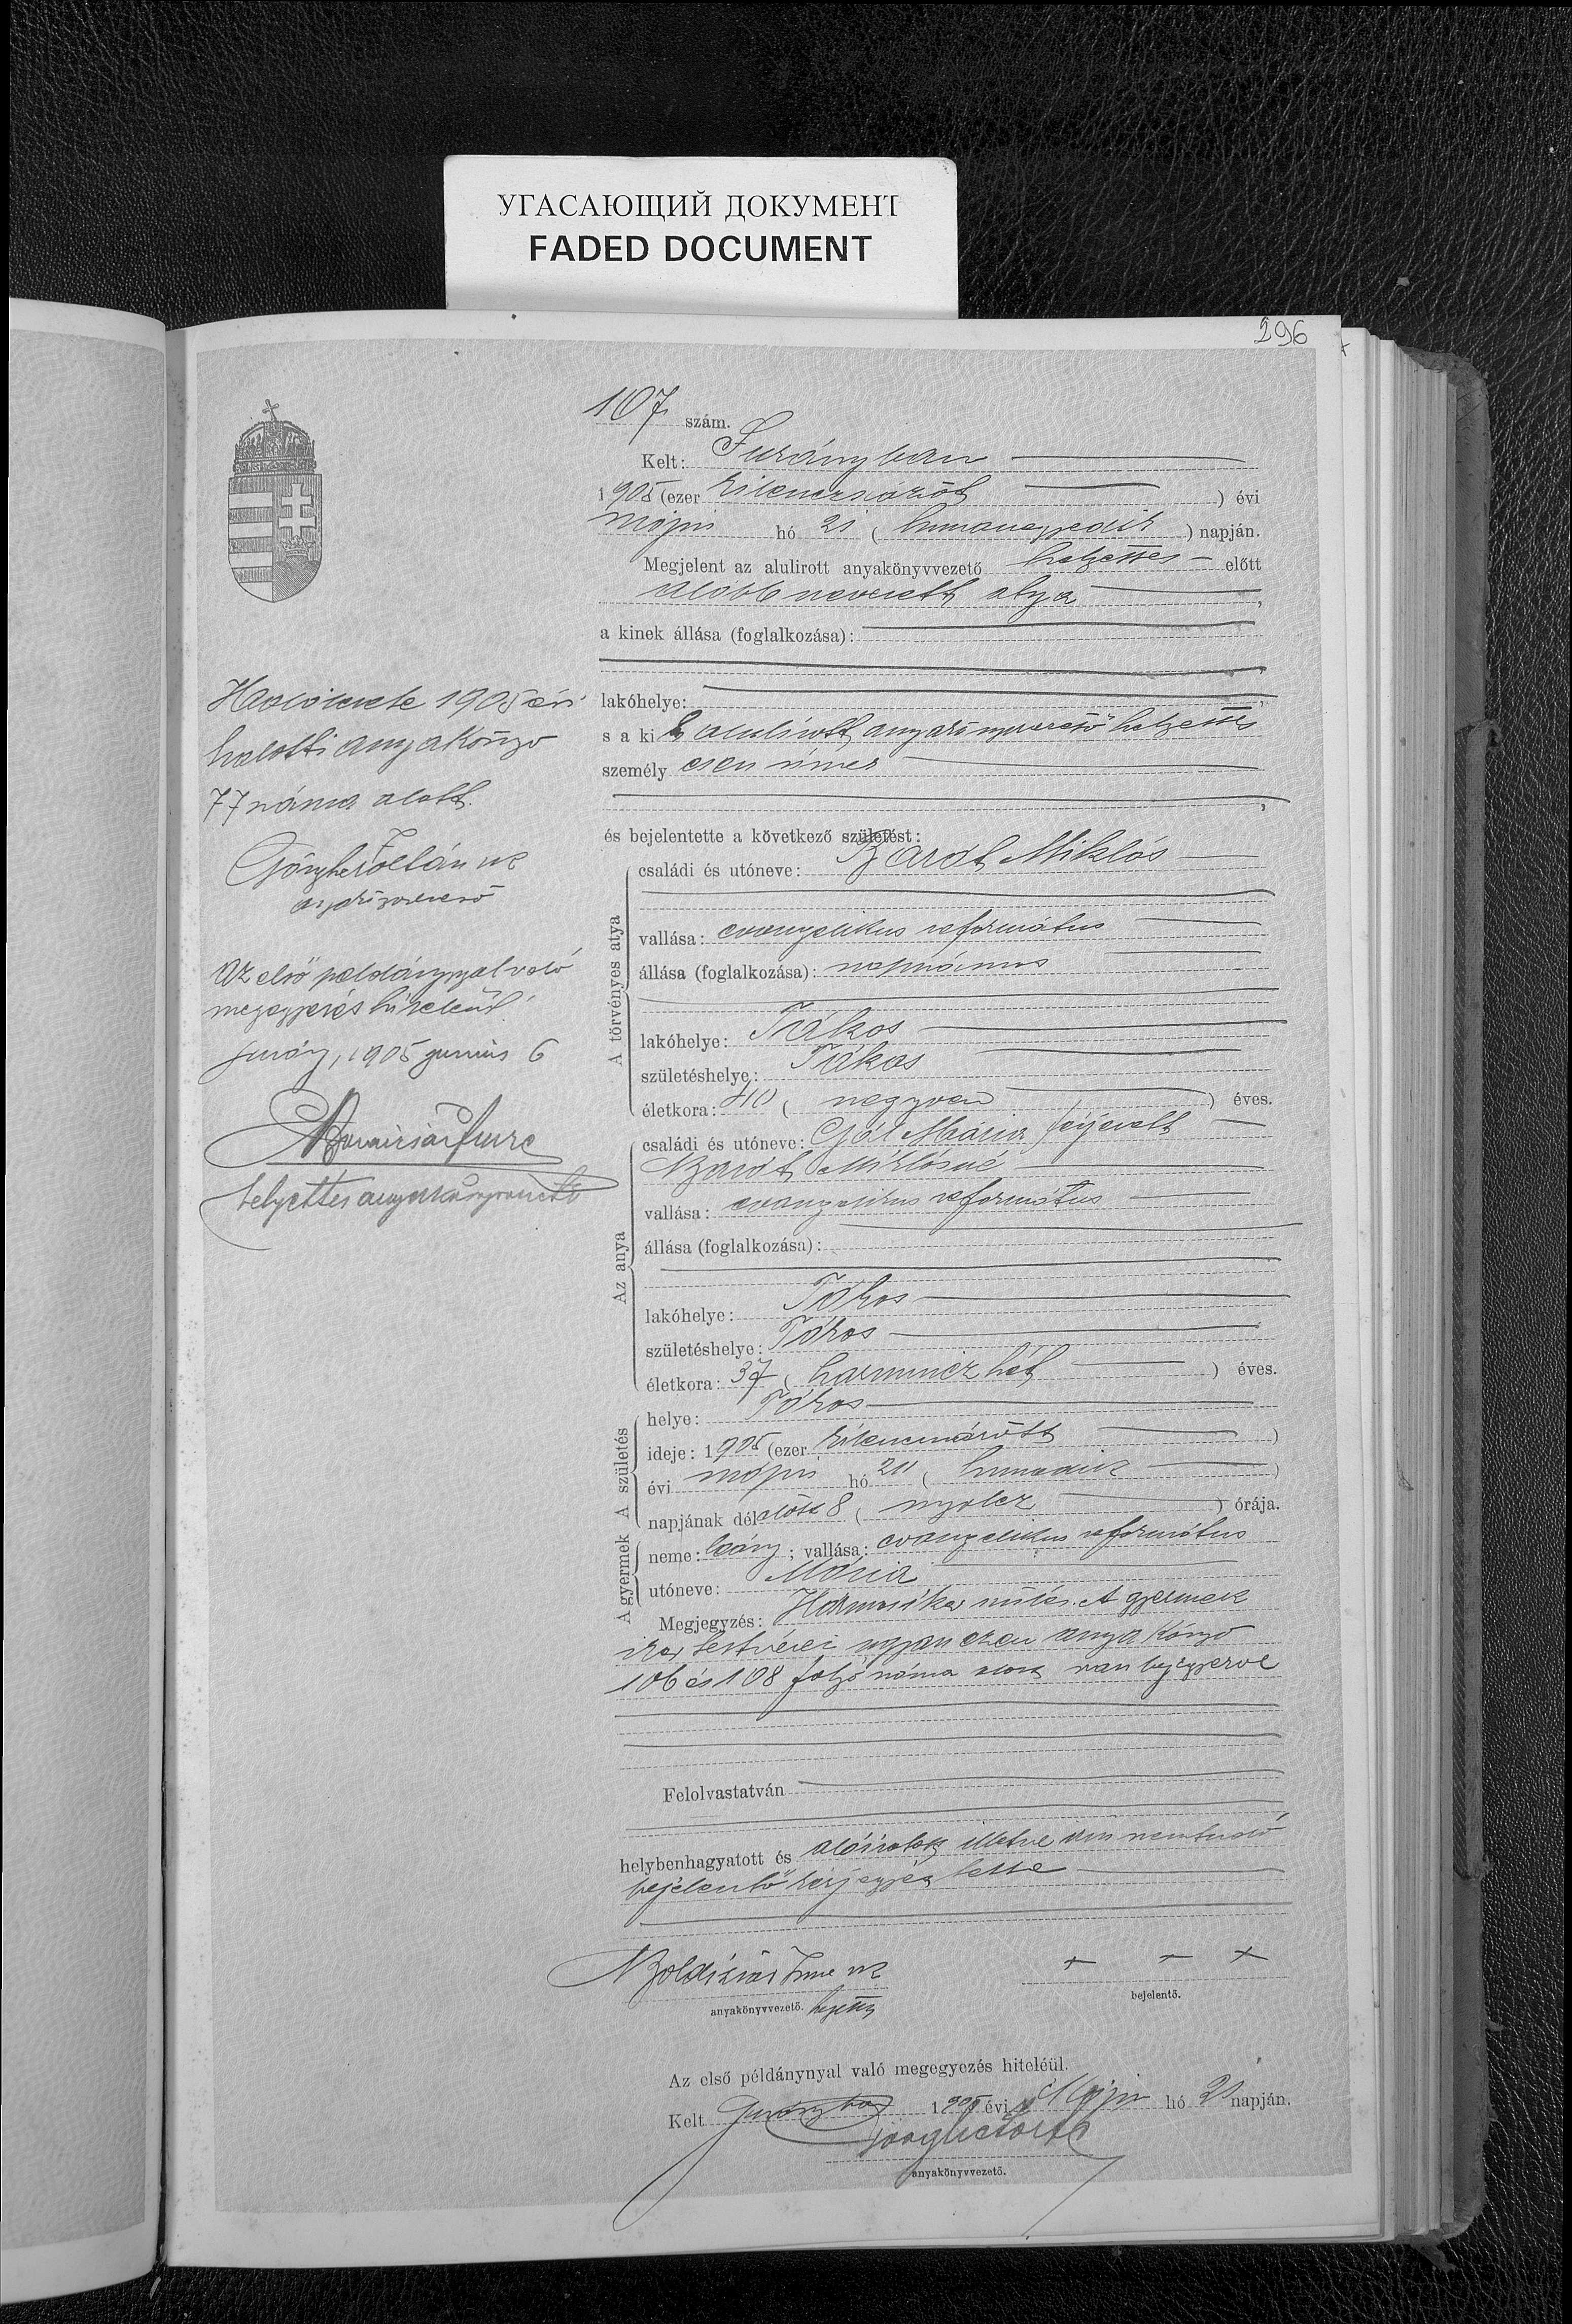 УГАСАЮЩИЙ ДОКУМЕНТ
FADED DOCUMENT
296
107 szám.
Kelt: Surányban
1905 (ezer kilenczszázöt) évi
május hó 21 (huszonegyedik) napján.
Megjelent az alulirott anyakönyvvezető helyettes előtt
alább nevezett atya,
a kinek állása (foglalkozása):
lakóhelye:
s a kit alulírott anyakönyvvezető helyettes
személyesen ismer
és bejelentette a következő születést:
A törvényes atya
családi és utóneve: Barát Miklós
vallása: evangelikus református
állása (foglalkozása): napszámos
lakóhelye: Tákos
születéshelye: Tákos
életkora: 40 (negyven) éves.
Az anya
családi és utóneve: Gál Mária férjezett
Barát Miklósné
vallása: evangelikus református
állása (foglalkozása):
lakóhelye: Tákos
születéshelye: Tákos
életkora: 37 (harminczhét) éves.
A születés
helye: Tákos
ideje: 1905 (ezer kilenczszázött)
évi május hó 20 (huszadik)
napjának délelőtt 8 (nyolcz) órája.
A gyermek
neme: leány; vallása: evangelikus református
utóneve: Mária
Megjegyzés: Hármasiker szülés. A gyermek
iker testvérei ugyanezen anyakönyv
106 és 108 folyó száma alatt van bejegyezve
Felolvastatván
helybenhagyatott és aláíratott illetve írni nem tudó
bejelentő kézjegyés lette
Boldizsár Imre sk
anyakönyvvezető. helyettes
+ + +
bejelentő.
Az első példánynyal való megegyezés hiteléül.
Kelt 1905 évi Május hó 21 napján.
anyakönyvvezető.
1905 évi
halotti anyakönyv
77 száma alatt.
Zoltán sk
anyakönyvvezető
Az első példánynyal való
megegyezés hiteléül
1905 junius 6
Boldizsár Imre
helyettes anyakönyvvezető